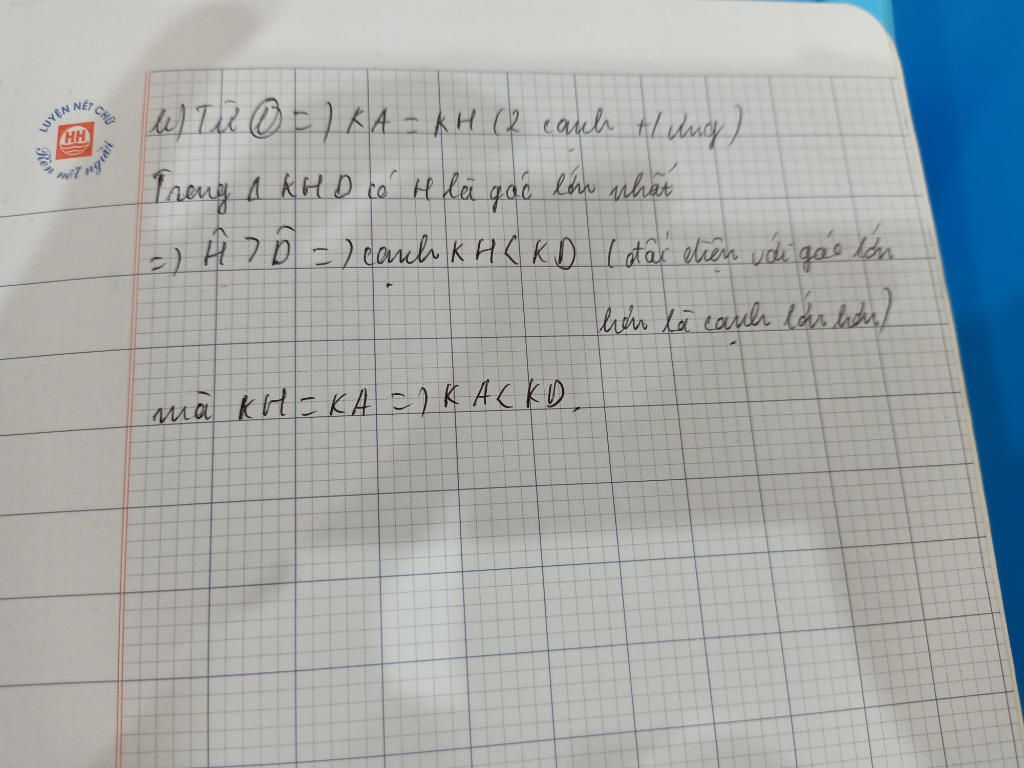 LUYỆN NÉT CHỮ
HH
Rèn nết người
c) Từ ① => KA = KH (2 cạnh t/ứng)
Trong Δ KHD có H là góc lớn nhất
=> Ĥ > D̂ => cạnh KH < KD (đối diện với góc lớn
hơn là cạnh lớn hơn)
mà KH = KA => KA < KD.